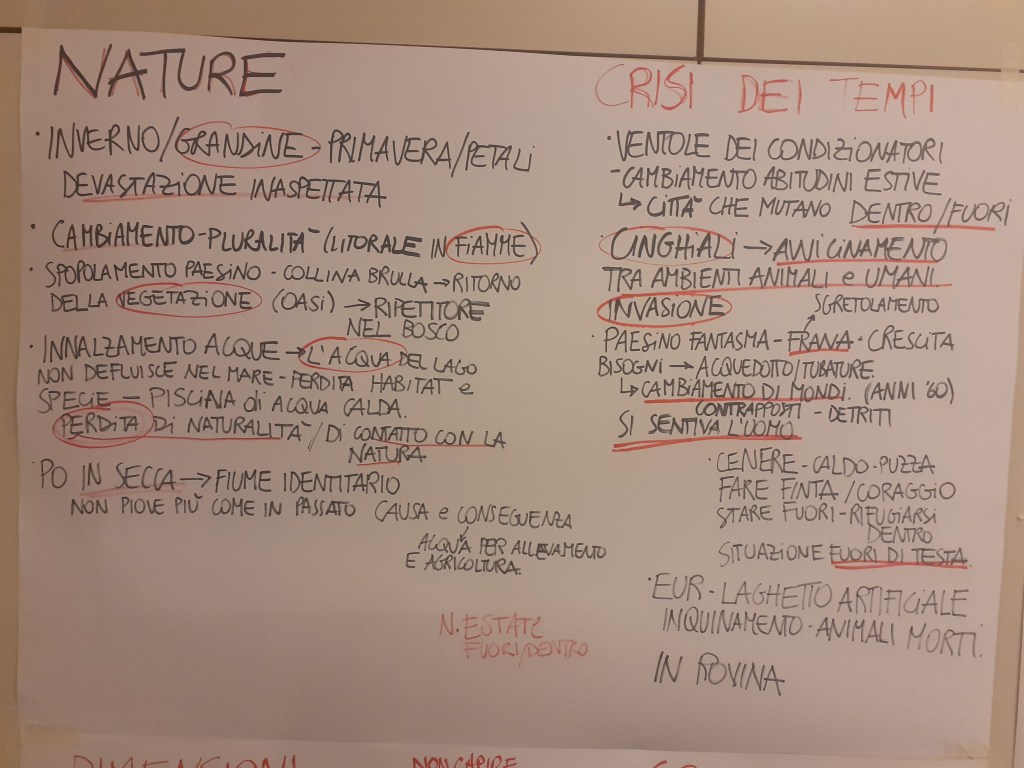 NATURE
· INVERNO/GRANDINE - PRIMAVERA/PETALI
DEVASTAZIONE INASPETTATA
· CAMBIAMENTO - PLURALITA' (LITORALE IN FIAMME)
· SPOPOLAMENTO PAESINO - COLLINA BRULLA → RITORNO
DELLA VEGETAZIONE (OASI) → RIPETITORE
NEL BOSCO
· INNALZAMENTO ACQUE → L'ACQUA DEL LAGO
NON DEFLUISCE NEL MARE - PERDITA HABITAT e
SPECIE - PISCINA di ACQUA CALDA.
PERDITA DI NATURALITA' / DI CONTATTO CON LA
NATURA
PO IN SECCA → FIUME IDENTITARIO
NON PIOVE PIÙ COME IN PASSATO CAUSA e CONSEGUENZA
ACQUA PER ALLEVAMENTO
E AGRICOLTURA.
N. ESTATE
FUORI/DENTRO
CRISI DEI TEMPI
· VENTOLE DEI CONDIZIONATORI
- CAMBIAMENTO ABITUDINI ESTIVE
↳ CITTA' CHE MUTANO DENTRO/FUORI
· CINGHIALI → AVVICINAMENTO
TRA AMBIENTI ANIMALI e UMANI.
INVASIONE
SGRETOLAMENTO
· PAESINO FANTASMA - FRANA - CRESCITA
BISOGNI → ACQUEDOTTO/TUBATURE
↳ CAMBIAMENTO DI MONDI. (ANNI '60)
CONTRAPPOSTI - DETRITI
SI SENTIVA L'UOMO
· CENERE - CALDO - PUZZA
FARE FINTA / CORAGGIO
STARE FUORI - RIFUGIARSI
DENTRO
SITUAZIONE FUORI DI TESTA.
· EUR - LAGHETTO ARTIFICIALE
INQUINAMENTO - ANIMALI MORTI.
IN ROVINA
DIMENSIONI
NON CAPIRE